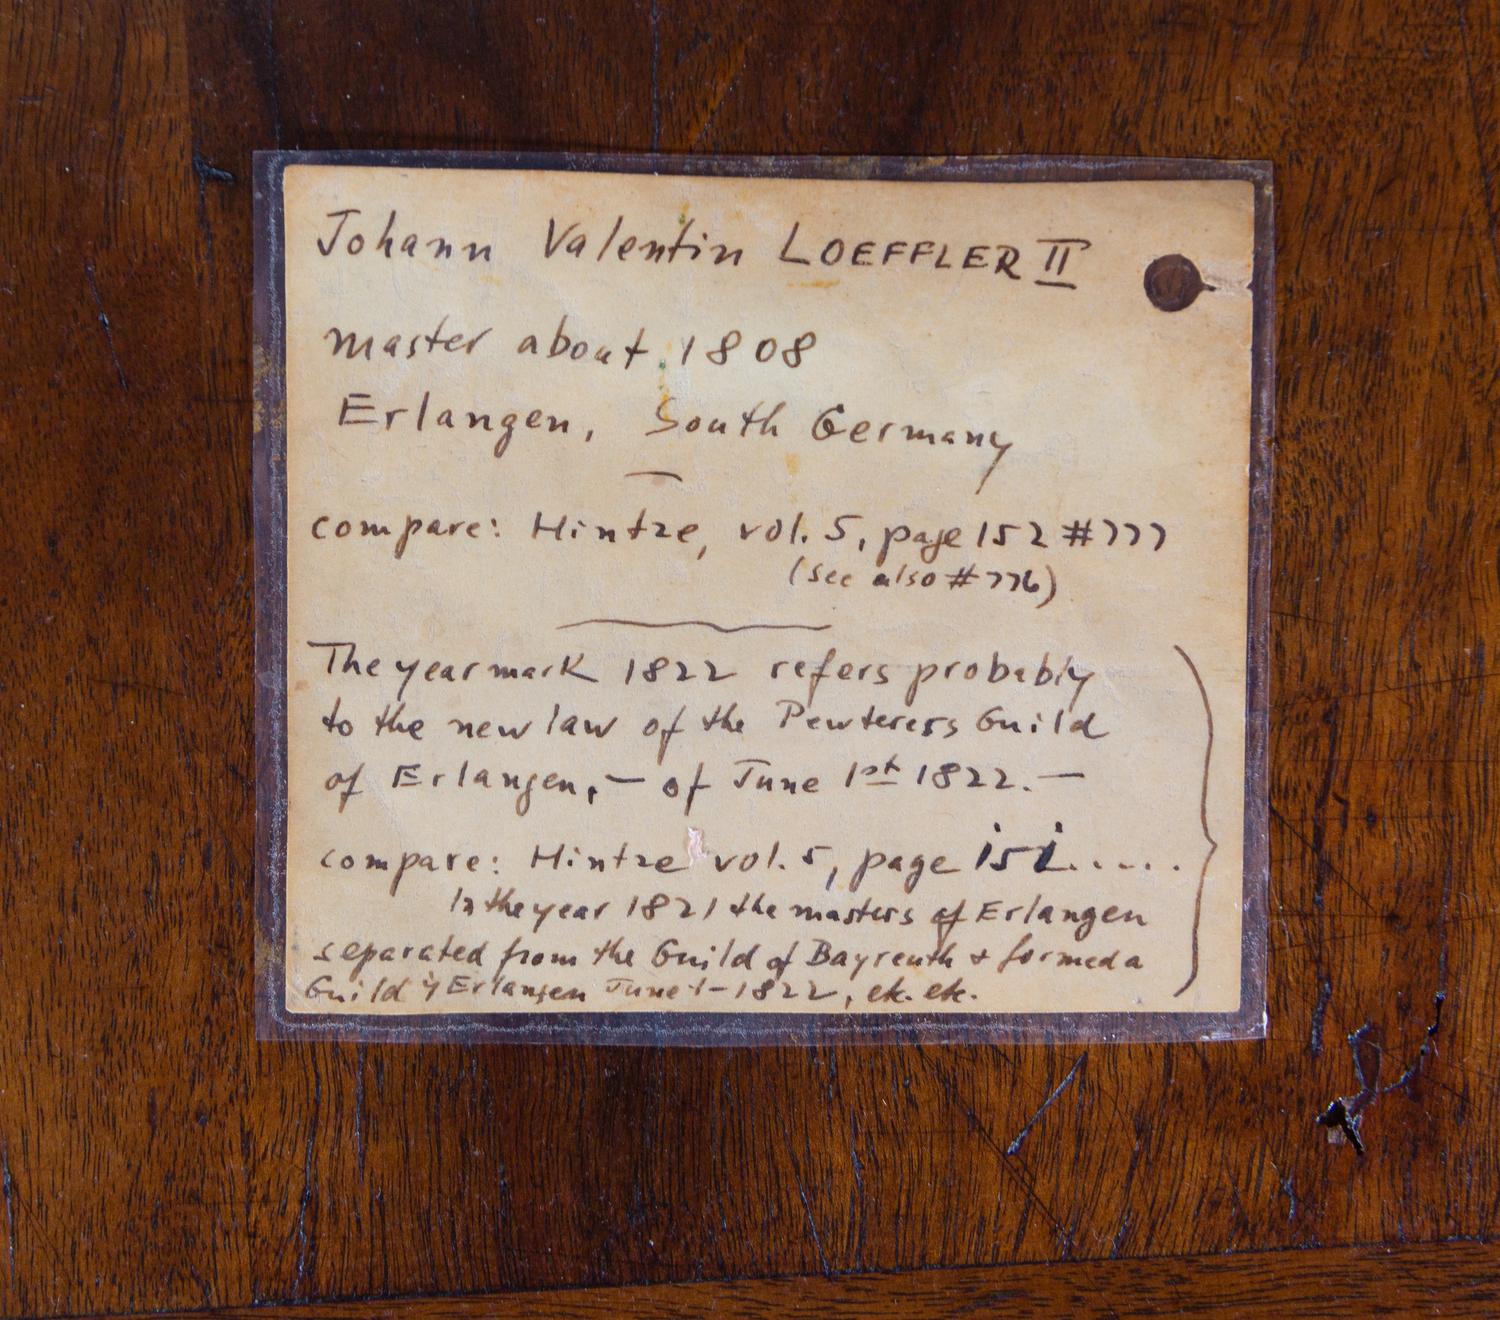 Johann Valentin LOEFFLER II
master about 1808
Erlangen, South Germany
compare: Hintze, vol. 5, page 152 #777
(see also #776)
The year mark 1822 refers probably
to the new law of the Pewterers Guild
of Erlangen, — of June 1st 1822. —
compare: Hintze vol. 5, page 151.....
In the year 1821 the masters of Erlangen
separated from the Guild of Bayreuth + formed a
Guild in Erlangen June 1-1822, etc. etc.